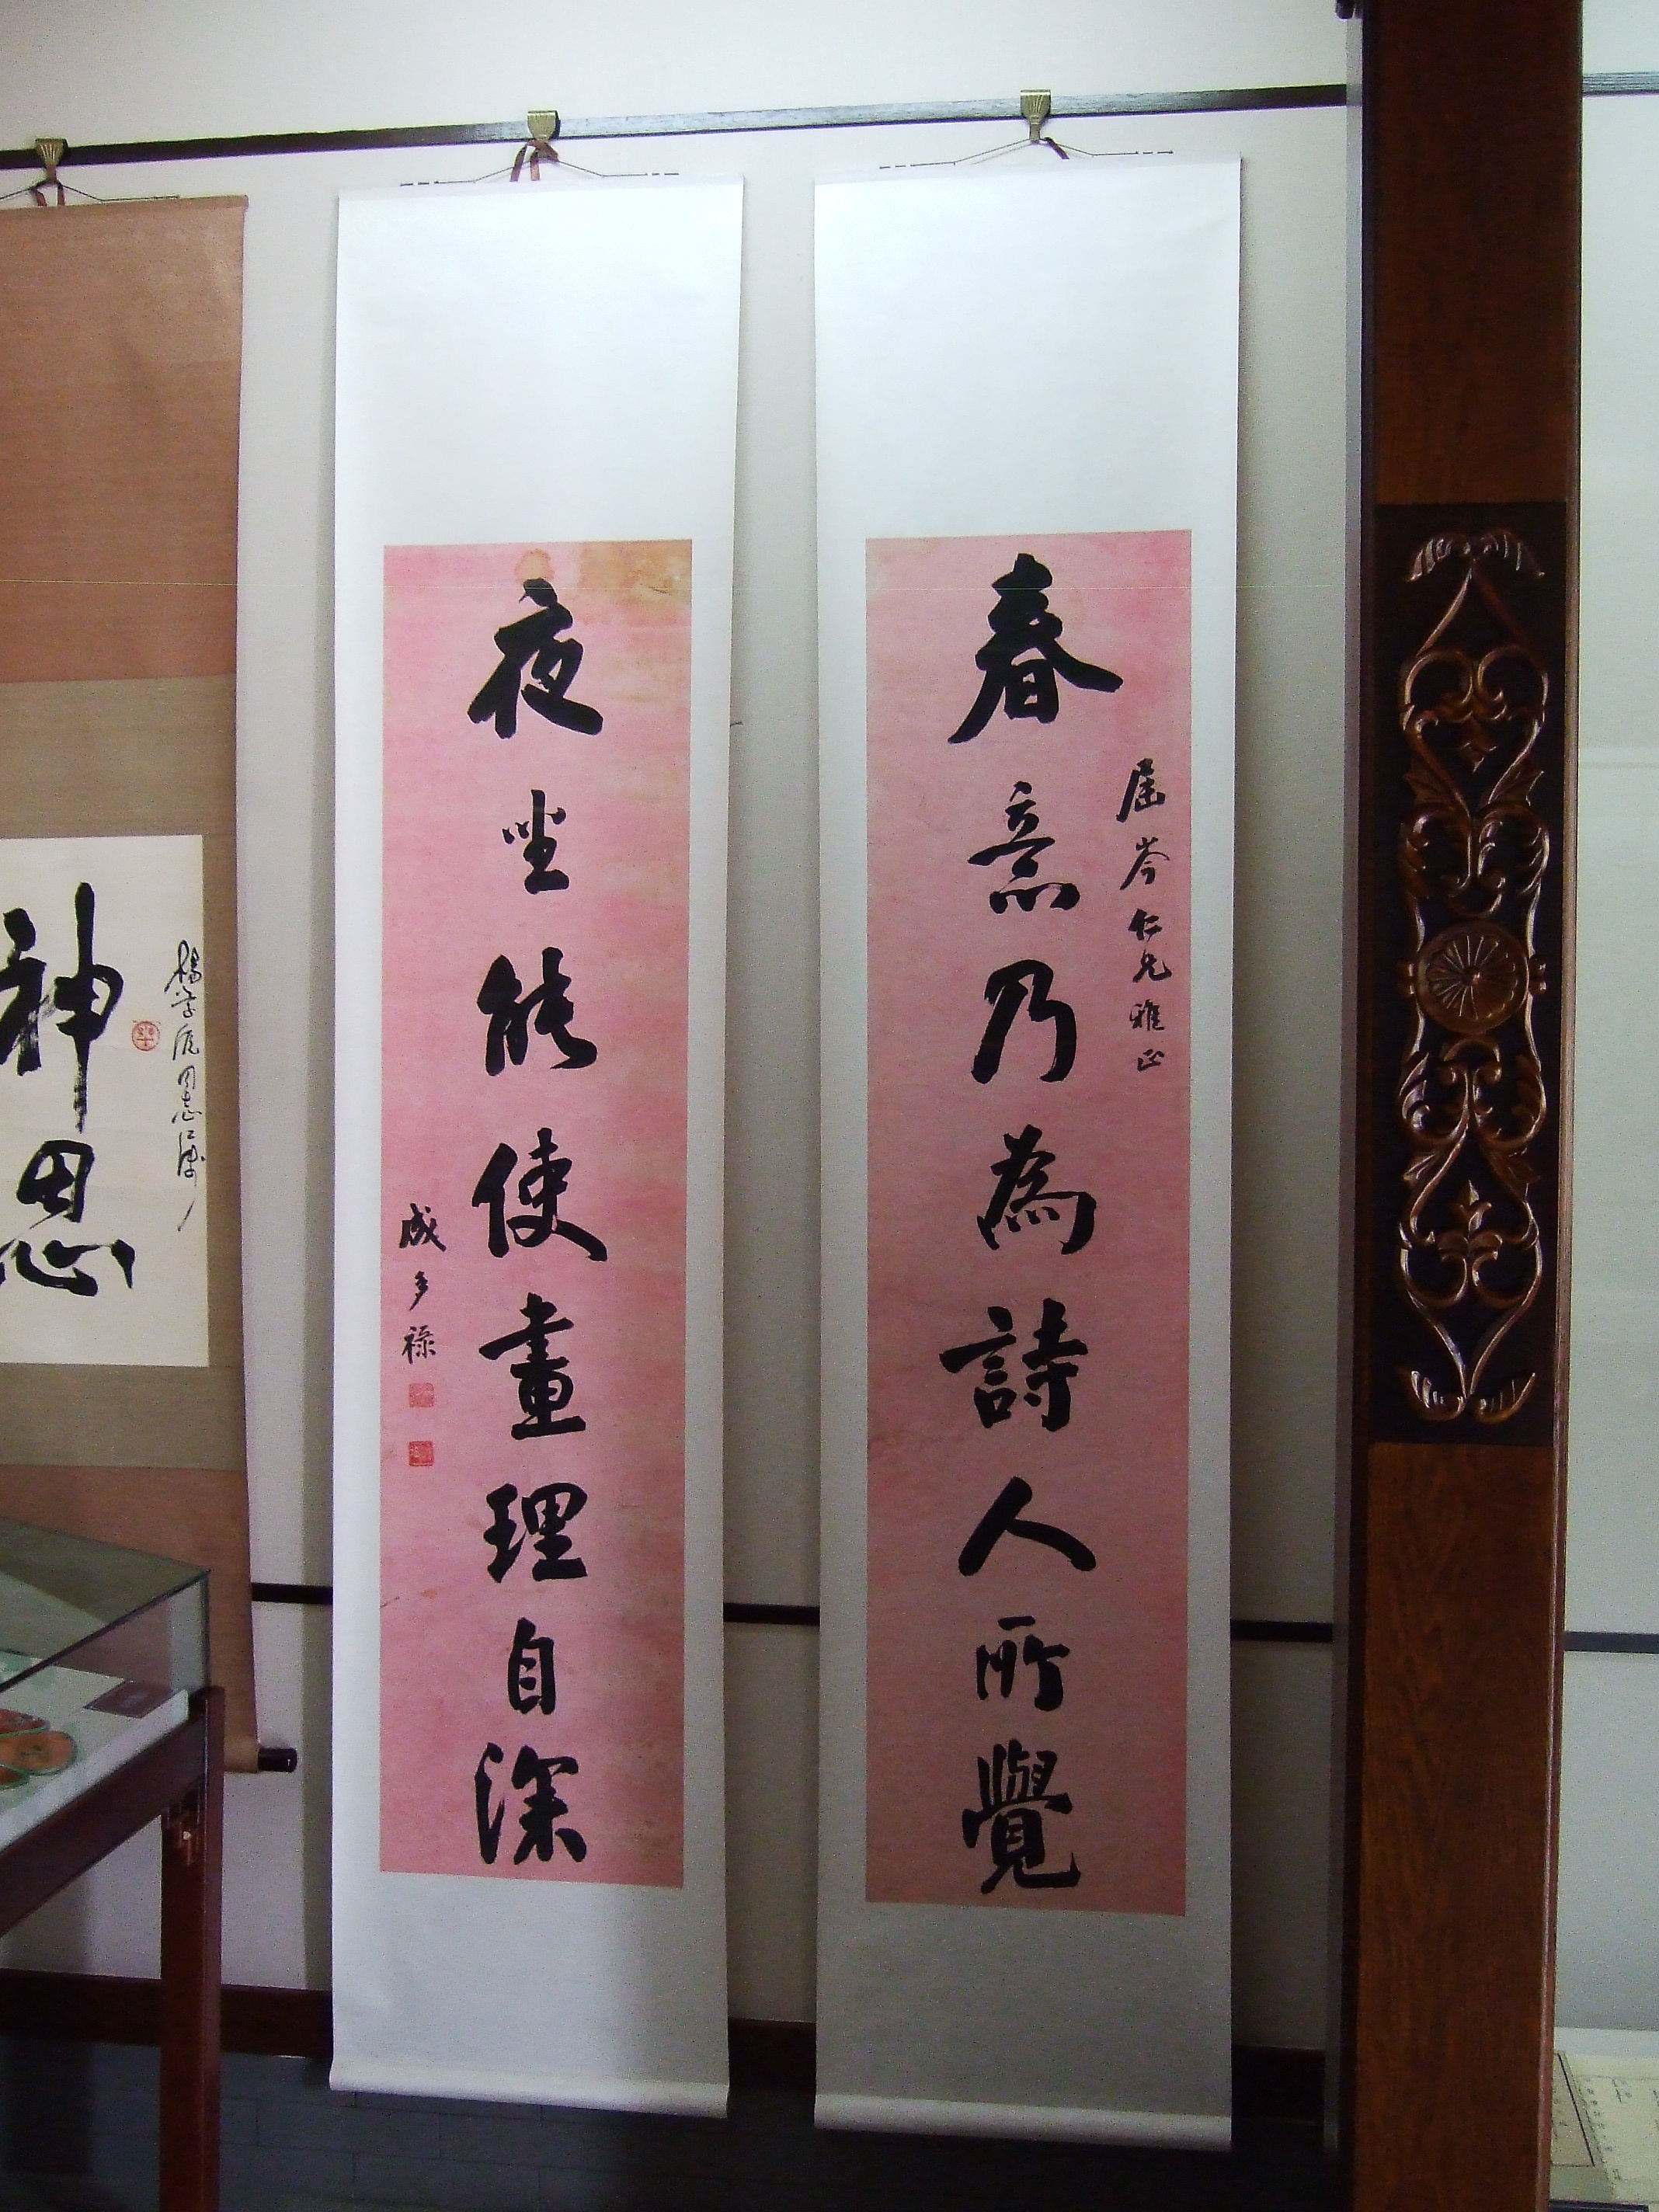 春意乃為詩人所覺
屈岑仁兄雅正
夜坐能使畫理自深
成多祿
神思